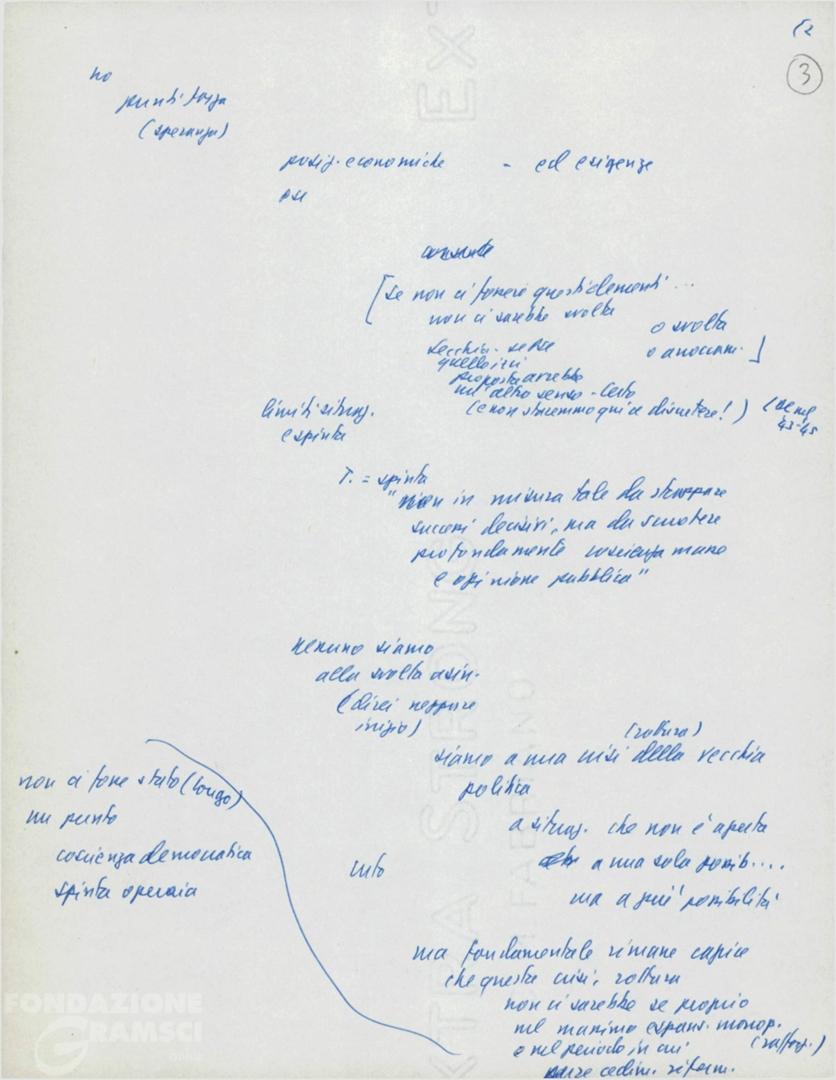 3
no
punti forza
(speranza)
posiz. economiche - ed esigenze
PSI
[se non ci fossero questi elementi ...
non ci sarebbe svolta
o svolta
Secchia - se
quello ivi
proposta avrebbe
nel altro senso - certo
(e non staremmo qui a discutere!)
43-45
limiti situaz.
e spinta
T. = spinta
"non in misura tale da strappare
successi decisivi, ma da scuotere
profondamente coscienza masse
e opinione pubblica"
nessuno siamo
alla svolta a sin.
(direi neppure
inizio)
(rottura)
siamo a una crisi della vecchia
politica
a situaz. che non è aperta
a una sola possib....
ma a più possibilità
non ci fosse stato (Longo)
un punto
coscienza democratica
spinta operaia
ma fondamentale rimane capire
che questa crisi, rottura
non ci sarebbe se proprio
nel massimo espans. monop.
o nel periodo in cui
(rafforz.)
cedim. riform.
EXTRA STRONG
FABRIANO
FONDAZIONE
GRAMSCI